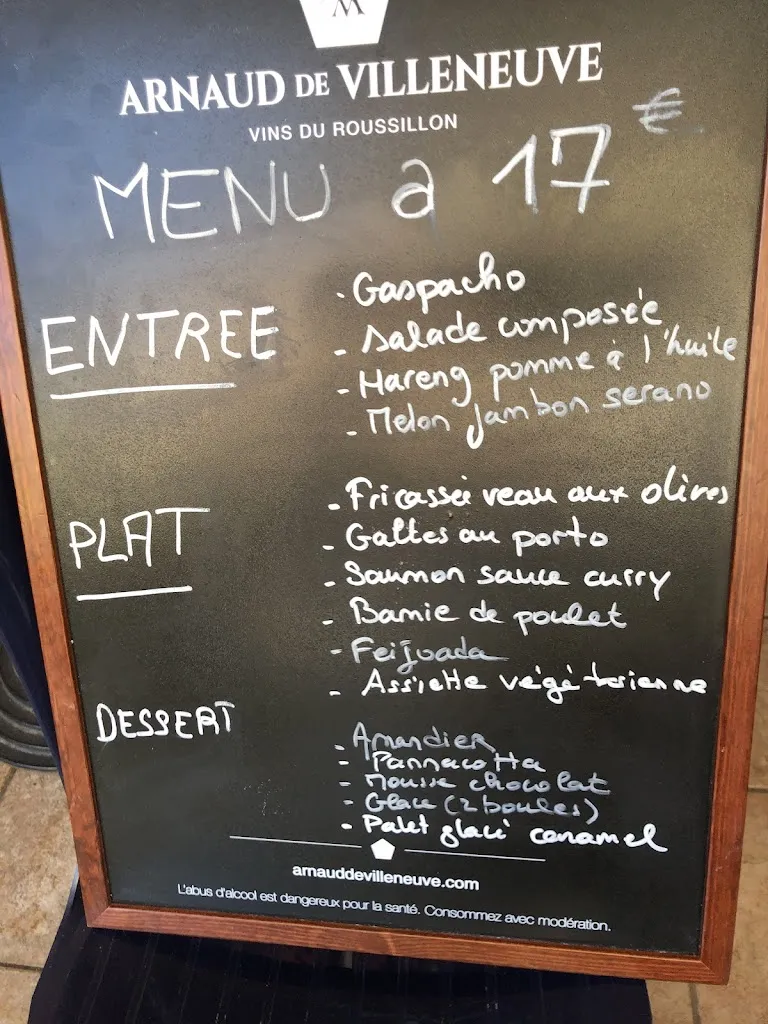 ARNAUD DE VILLENEUVE
VINS DU ROUSSILLON
MENU a 17 €
ENTREE
. Gaspacho
- Salade composée
- Hareng pomme à l'huile
- Melon jambon serano
PLAT
- Fricassée veau aux olives
- Galtes au porto
- Saumon sauce curry
- Bamie de poulet
- Feijuada
- Assiette végétarienne
DESSERT
- Amandier
- Pannacotta
- Mousse chocolat
- Glace (2 boules)
- Palet glacé caramel
arnauddevilleneuve.com
L'abus d'alcool est dangereux pour la santé. Consommez avec modération.